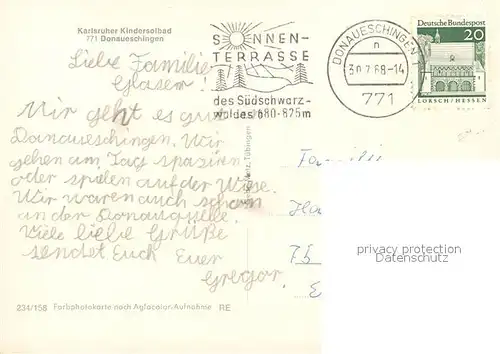 Karlsruher Kindersolbad
771 Donaueschingen
Liebe Familie
Glaser!
Mir geht es gut
Donaueschingen. Wir
gehen am Tag spazieren
oder spielen auf der Wiese.
Wir waren auch schon
an der Donauquelle.
Viele liebe Grüße
sendet Euch Euer
Gregor
234/158 Farbphotokarte nach Agfacolor-Aufnahme RE
SONNEN-
TERRASSE
des Südschwarz-
waldes 680-875m
DONAUESCHINGEN 1
n
30.7.68-14
771
Deutsche Bundespost
20
LORSCH/HESSEN
Famili
75
privacy protection
Datenschutz